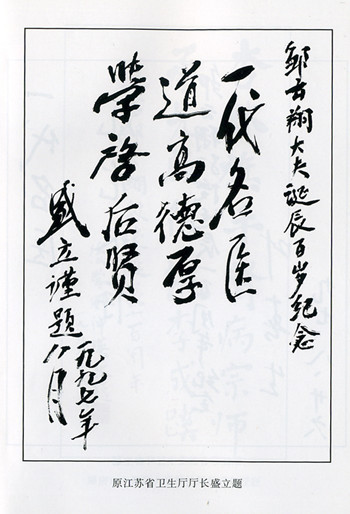 邹云翔大夫诞辰百岁纪念
一代名医
道高德厚
学启后贤
盛立谨题
一九九七年
八月
原江苏省卫生厅厅长盛立题